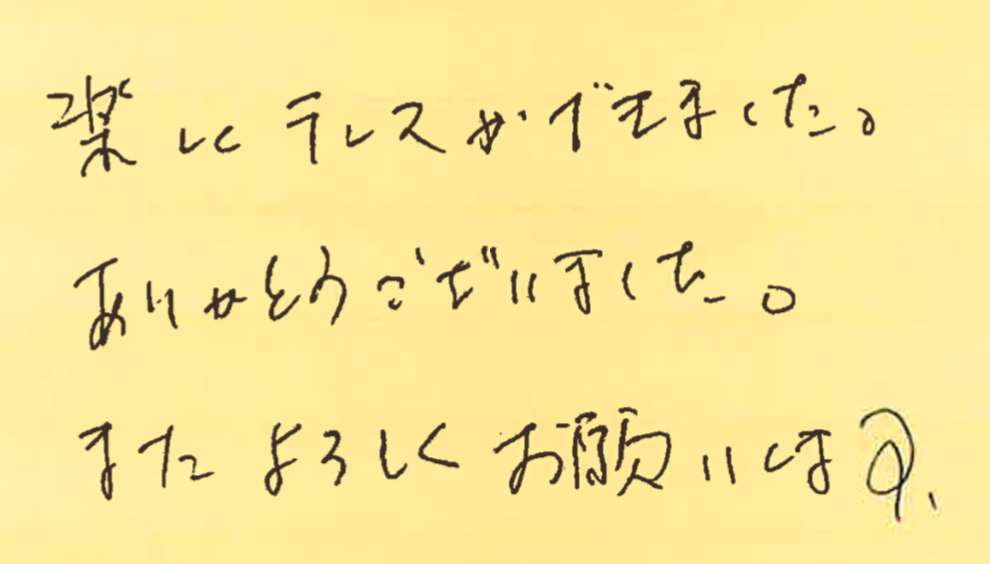 楽しくテレスができました。
ありがとうございました。
またよろしくお願いします.